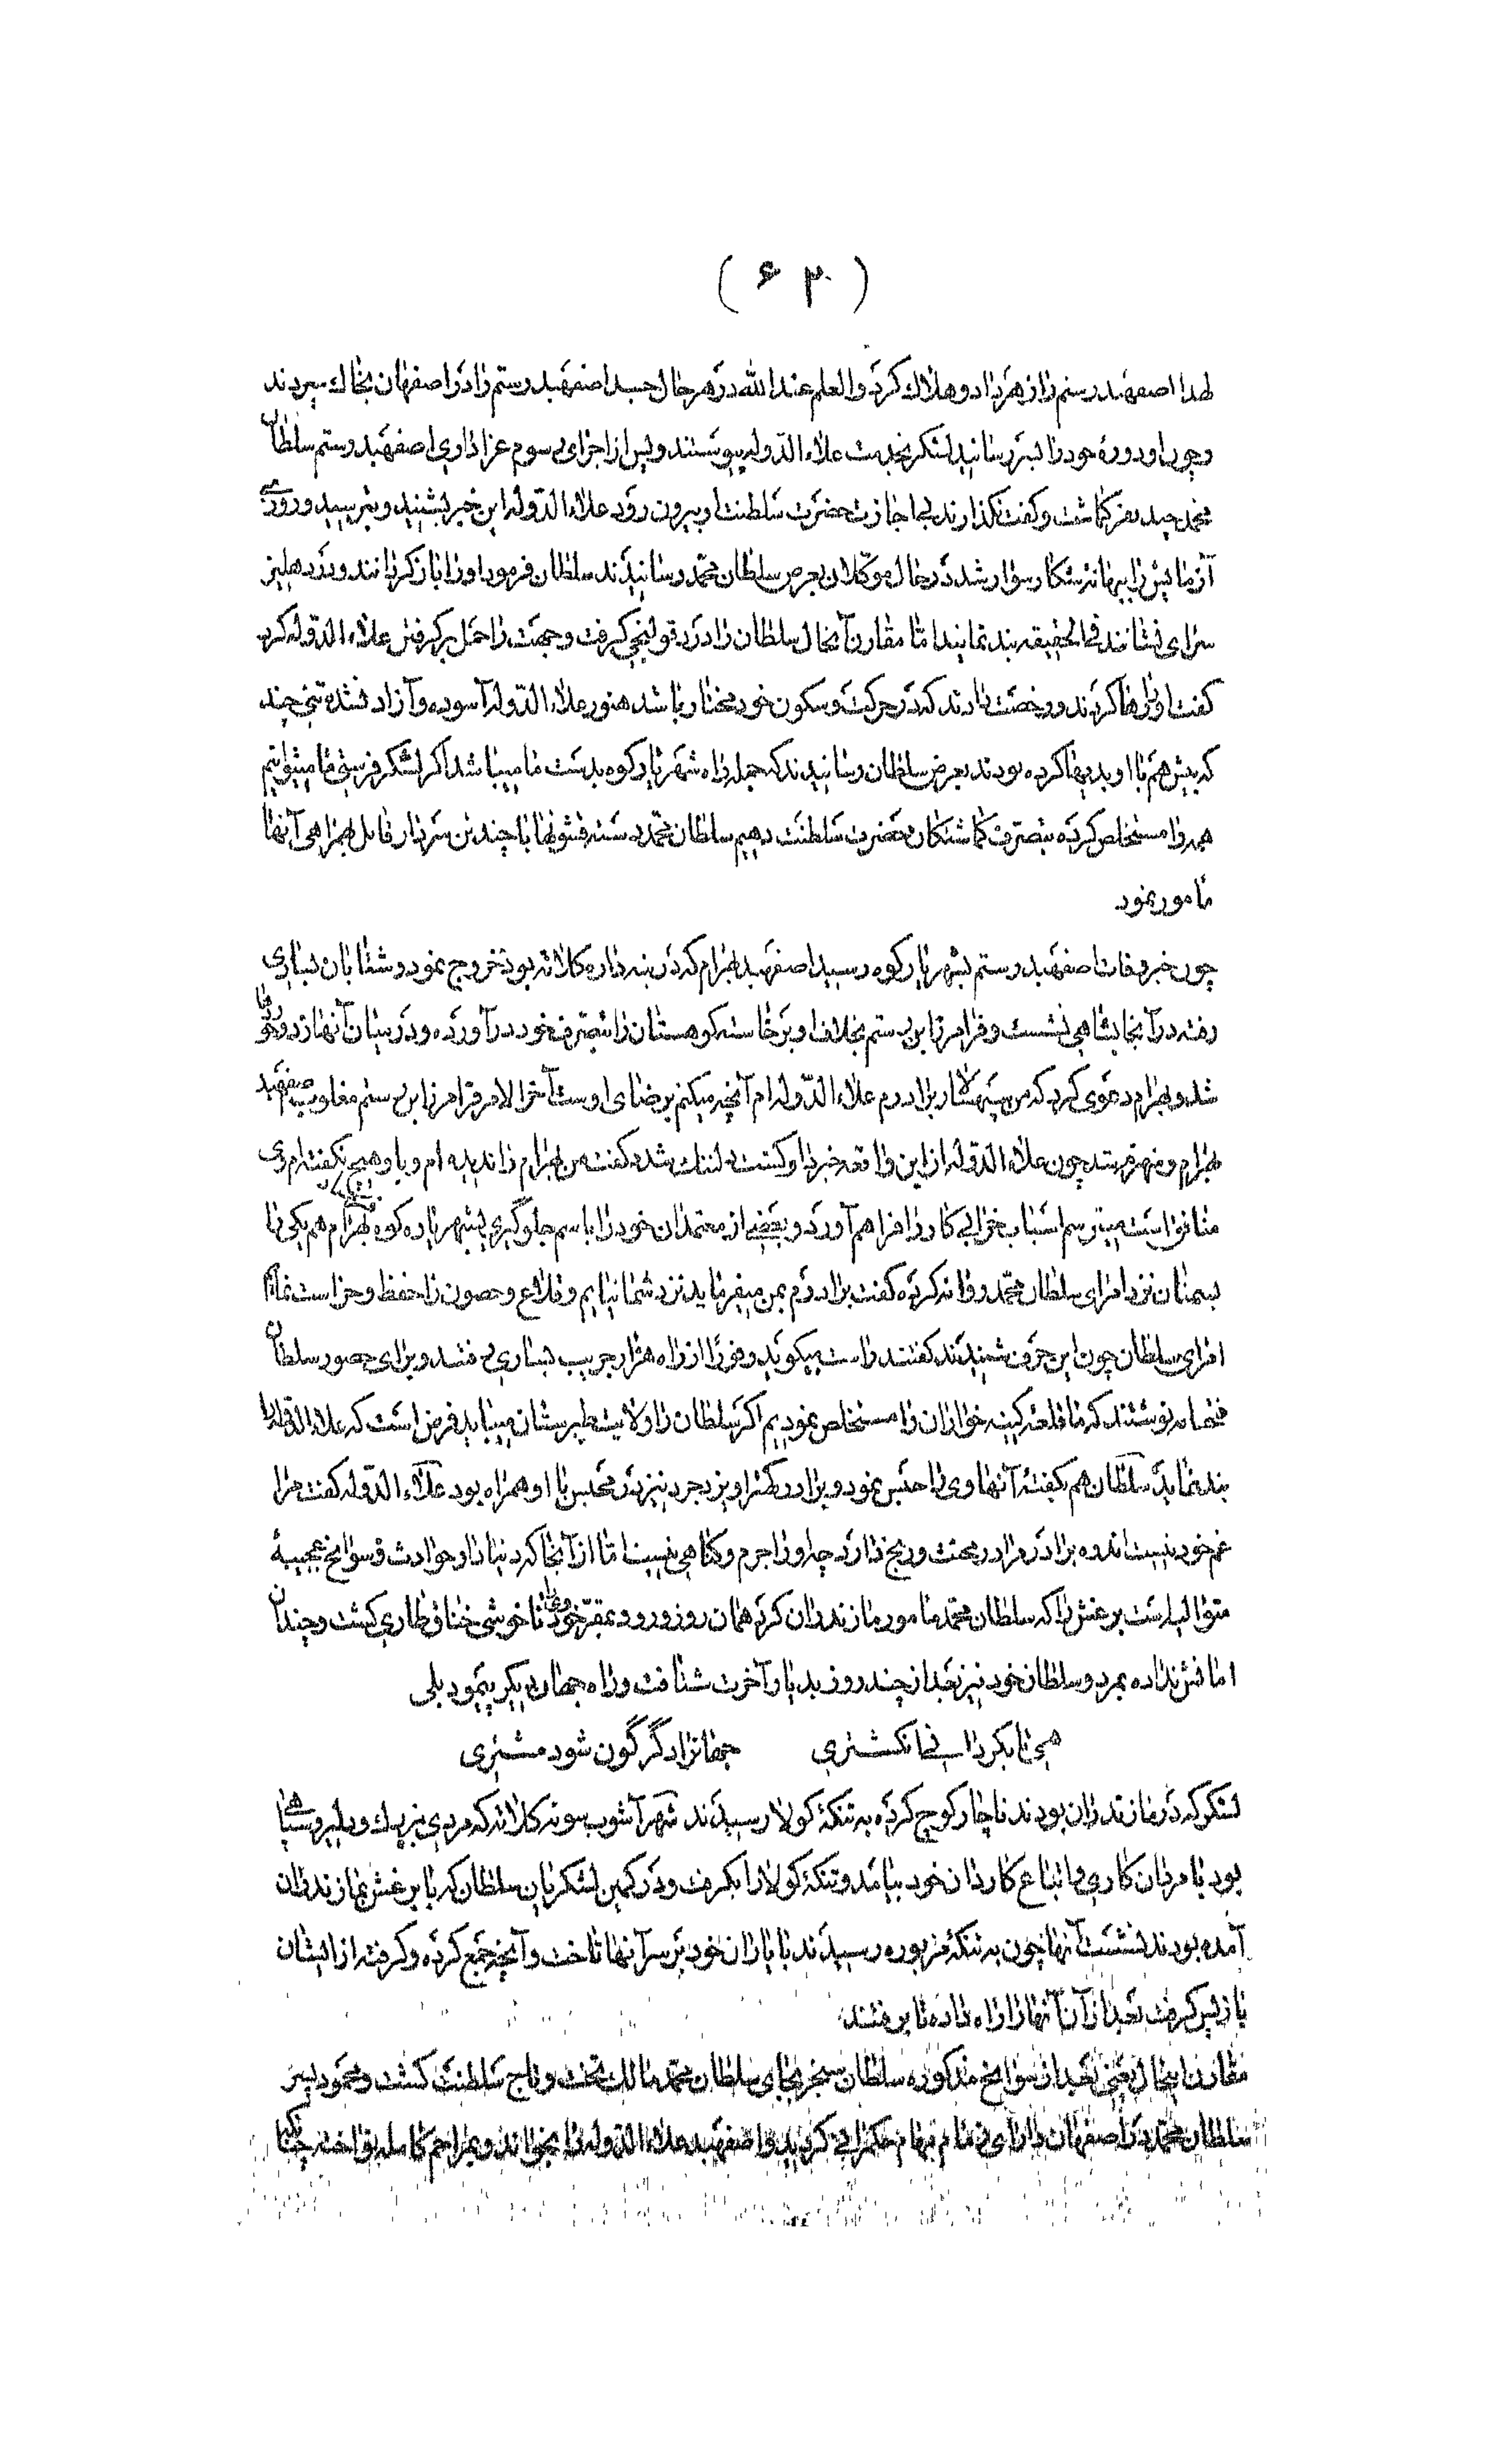 ( ۶۳ )
لهذا اصفهبد رستم را زهر داد و هلاك كرد والعلم عند الله در هر حال جسد اصفهبد رستم را در اصفهان بخاك سپردند
و چون او دوره خود را بسر رسانيد لشكر بخدمت علاء الدوله پيوستند و پس از اجراى رسوم عزادارى اصفهبد رستم سلطان
محمد چند نفر گماشت و گفت نگذارند بى اجازت حضرت سلطنت او بيرون رود علاء الدوله اين خبر بشنيد و بترسيد و روزى
آزمايش را ببهانه شكار سوار شد در حال موكلان بعرض سلطان محمد رسانيدند سلطان فرمود او را باز گردانند و در دهليز
سراى نشانند فى الحقيقه بند نمايند اما مقارن آنحال سلطان را درد قولنجى گرفت و جهت را حمل بر گرفتن علاء الدوله كرد
گفت او را رها كردند و رخصت دادند كه در حركت و سكون خود مختار باشد هنوز علاء الدوله آسوده و آزاد نشده تنى چند
كه پيش هم با او بديها كرده بودند بعرض سلطان رسانيدند كه جمله راه شهريار كوه بدست ما ميباشد اگر لشكر فرستى ما ميتوانيم
همه را مستخلص كرده بتصرف گماشتگان حضرت سلطنت دهيم سلطان محمد دسته قشونها با چند تن سردار قابل بهمراهى آنها
مامور نمود
چون خبر وفات اصفهبد رستم بشهريار كوه رسيد اصفهبد بهرام كه در بنه داره كلاته بود خروج نمود و شتابان بسارى
رفته در آنجا بشاهى نشست و فرامرز ابن رستم بخلاف او برخاسته كوهستان را بتصرف خود در آورده و در ميان آنها زد و خوردها
شد و بهرام دعوى كرد كه من سپهسالار برادرم علاء الدوله ام آنچه ميكنم برضاى اوست آخر الامر فرامرز ابن رستم مغلوب اصفهبد
بهرام و منهزم شد چون علاء الدوله از اين واقعه خبردار گشت دلتنگ شده گفت من بهرام را نديده ام و با و هيچ نگفته ام وى
منافق است ميترسم اسباب خرابى كار را فراهم آورد و بعضى از معتمدان خود را باسم جلوگيرى بشهرياره كوه بهرام هم يكى را
بسمنان نزد امراى سلطان محمد روانه كرده گفت برادرم بمن ميفرمايد نزد شما نيايم و قلاع و حصون را حفظ و حراست نمايم
امراى سلطان چون اين حرف شنيدند گفتند راست ميگويد و فورا از راه هزار جريب بسارى رفتند و براى حضور سلطان
فتحنامه نوشتند كه ما قلعه گينه خواران را مستخلص نموديم اگر سلطان را ولايت طبرستان ميبايد فرض است كه علاء الدوله را
بند نمايد سلطان هم بگفته آنها وى را حبس نمود و برادر كهتر او يزدجرد نيز در محبس با او همراه بود علاء الدوله گفت مرا
غم خود نيست اندوه برادر مرا در محنت و رنج دارد چه او را جرم و گناهى نيست اما از آنجا كه دنيا را و حوادث و سوانح عجيبه
متواليه است برغش را كه سلطان محمد مامور مازندران كرد همان روز ورود بمقر خود ناخوشى خناق طارى گشت و چندان
امانش نداده بمرد و سلطان خود نيز بعد از چند روز بديار آخرت شتافت و راه جهان ديگر پيمود بلى
همى تا بگردانى انگشترى جهانرا دگرگون شود مشترى
لشكر كه در مازندران بودند ناچار كوچ كرده به تنگه كولا رسيدند شهر آشوب سوته كلاته كه مردى زيرك و دلير و سپاهى
بود با مردان كارى و اتباع كاردان خود بيامد و تنگه كولا را بگرفت و در كمين لشكريان سلطان كه با برغش بمازندران
آمده بودند نشست آنها چون به تنگه مزبوره رسيدند با ياران خود بر سر آنها تاخت و آنچه جمع كرده و گرفته از ايشان
باز پس گرفت بعد از آن آنها را راه داده تا برفتند
مقارن اينحال يعنى بعد از سوانح مذكوره سلطان سنجر بجاى سلطان محمد مالك تخت و تاج سلطنت گشت و محمود پسر
سلطان محمد در اصفهان داراى زمام مهام حكمرانى گرديد و اصفهبد علاء الدوله را بخواند و بمراحم كامله بنواخت چنانكه